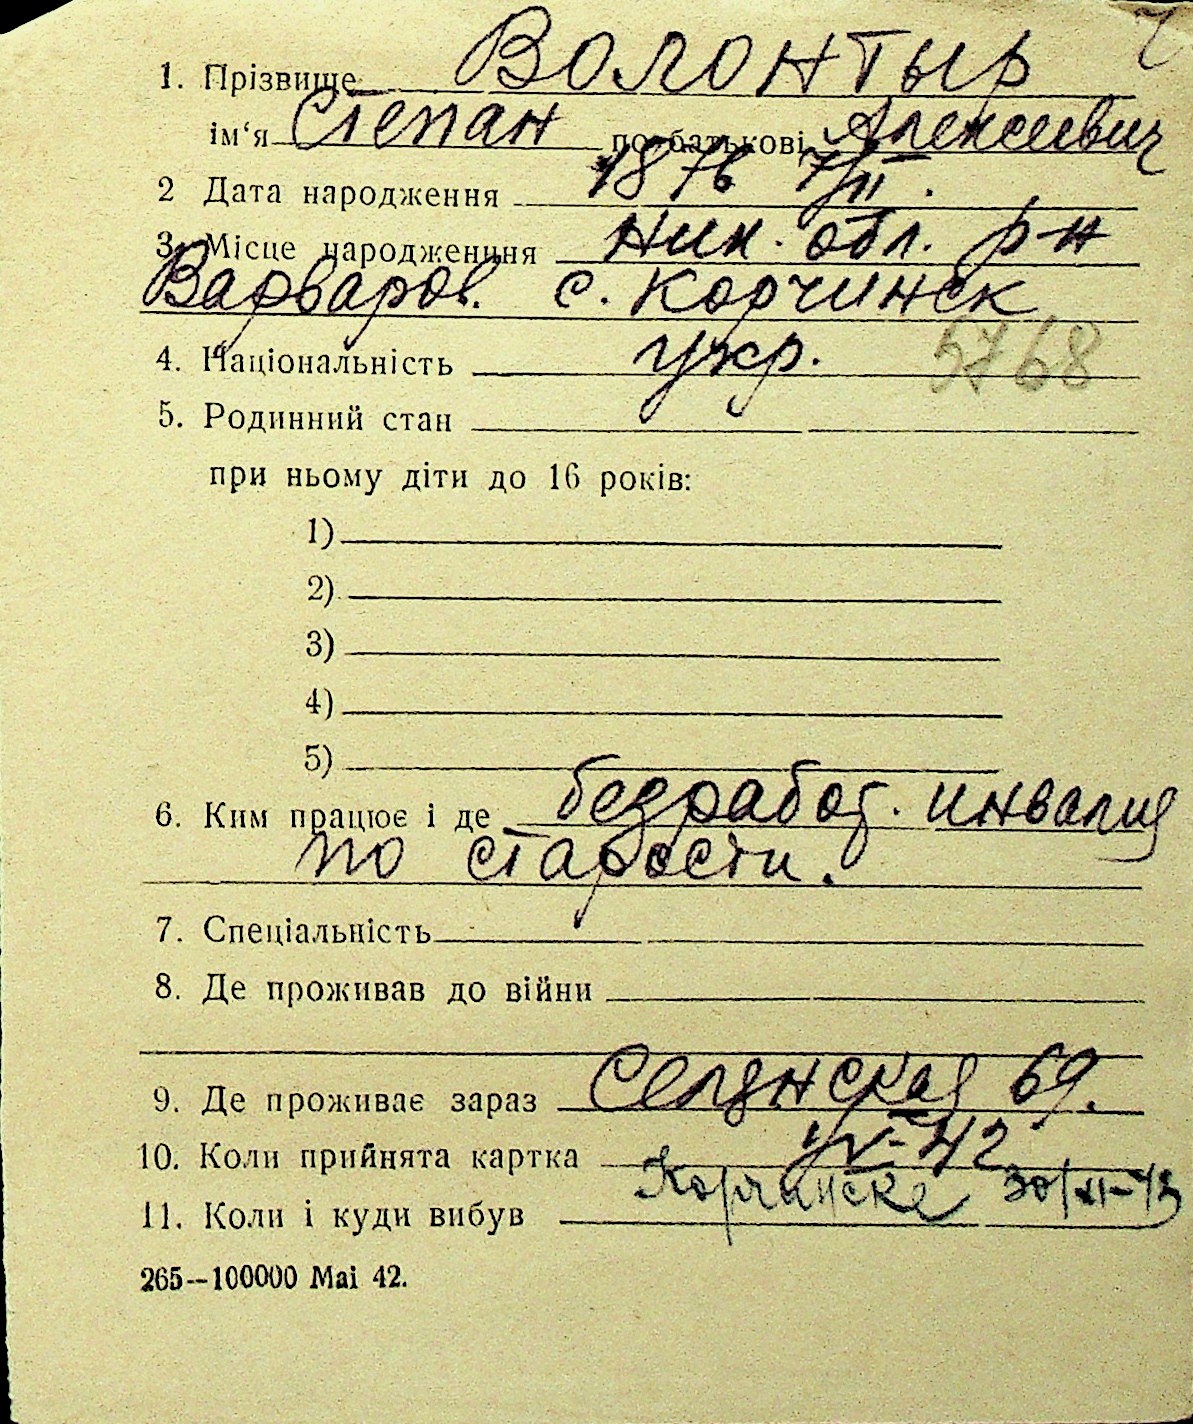 1. Прізвище Волонтыр
ім‘я Степан по-батькові Алексеевич
2 Дата народження 1876 7/II.
3. Місце народженння Ник. обл. р-н
Варваров. с. Корчинск
4. Національність укр. 5768
5. Родинний стан
при ньому діти до 16 років:
1)
2)
3)
4)
5)
6. Ким працює і де безработ. инвалид
по старости.
7. Спеціальність
8. Де проживав до війни
9. Де проживає зараз 69.
10. Коли прийнята картка
11. Коли і куди вибув 30/XI-43
265—100000 Mai 42.